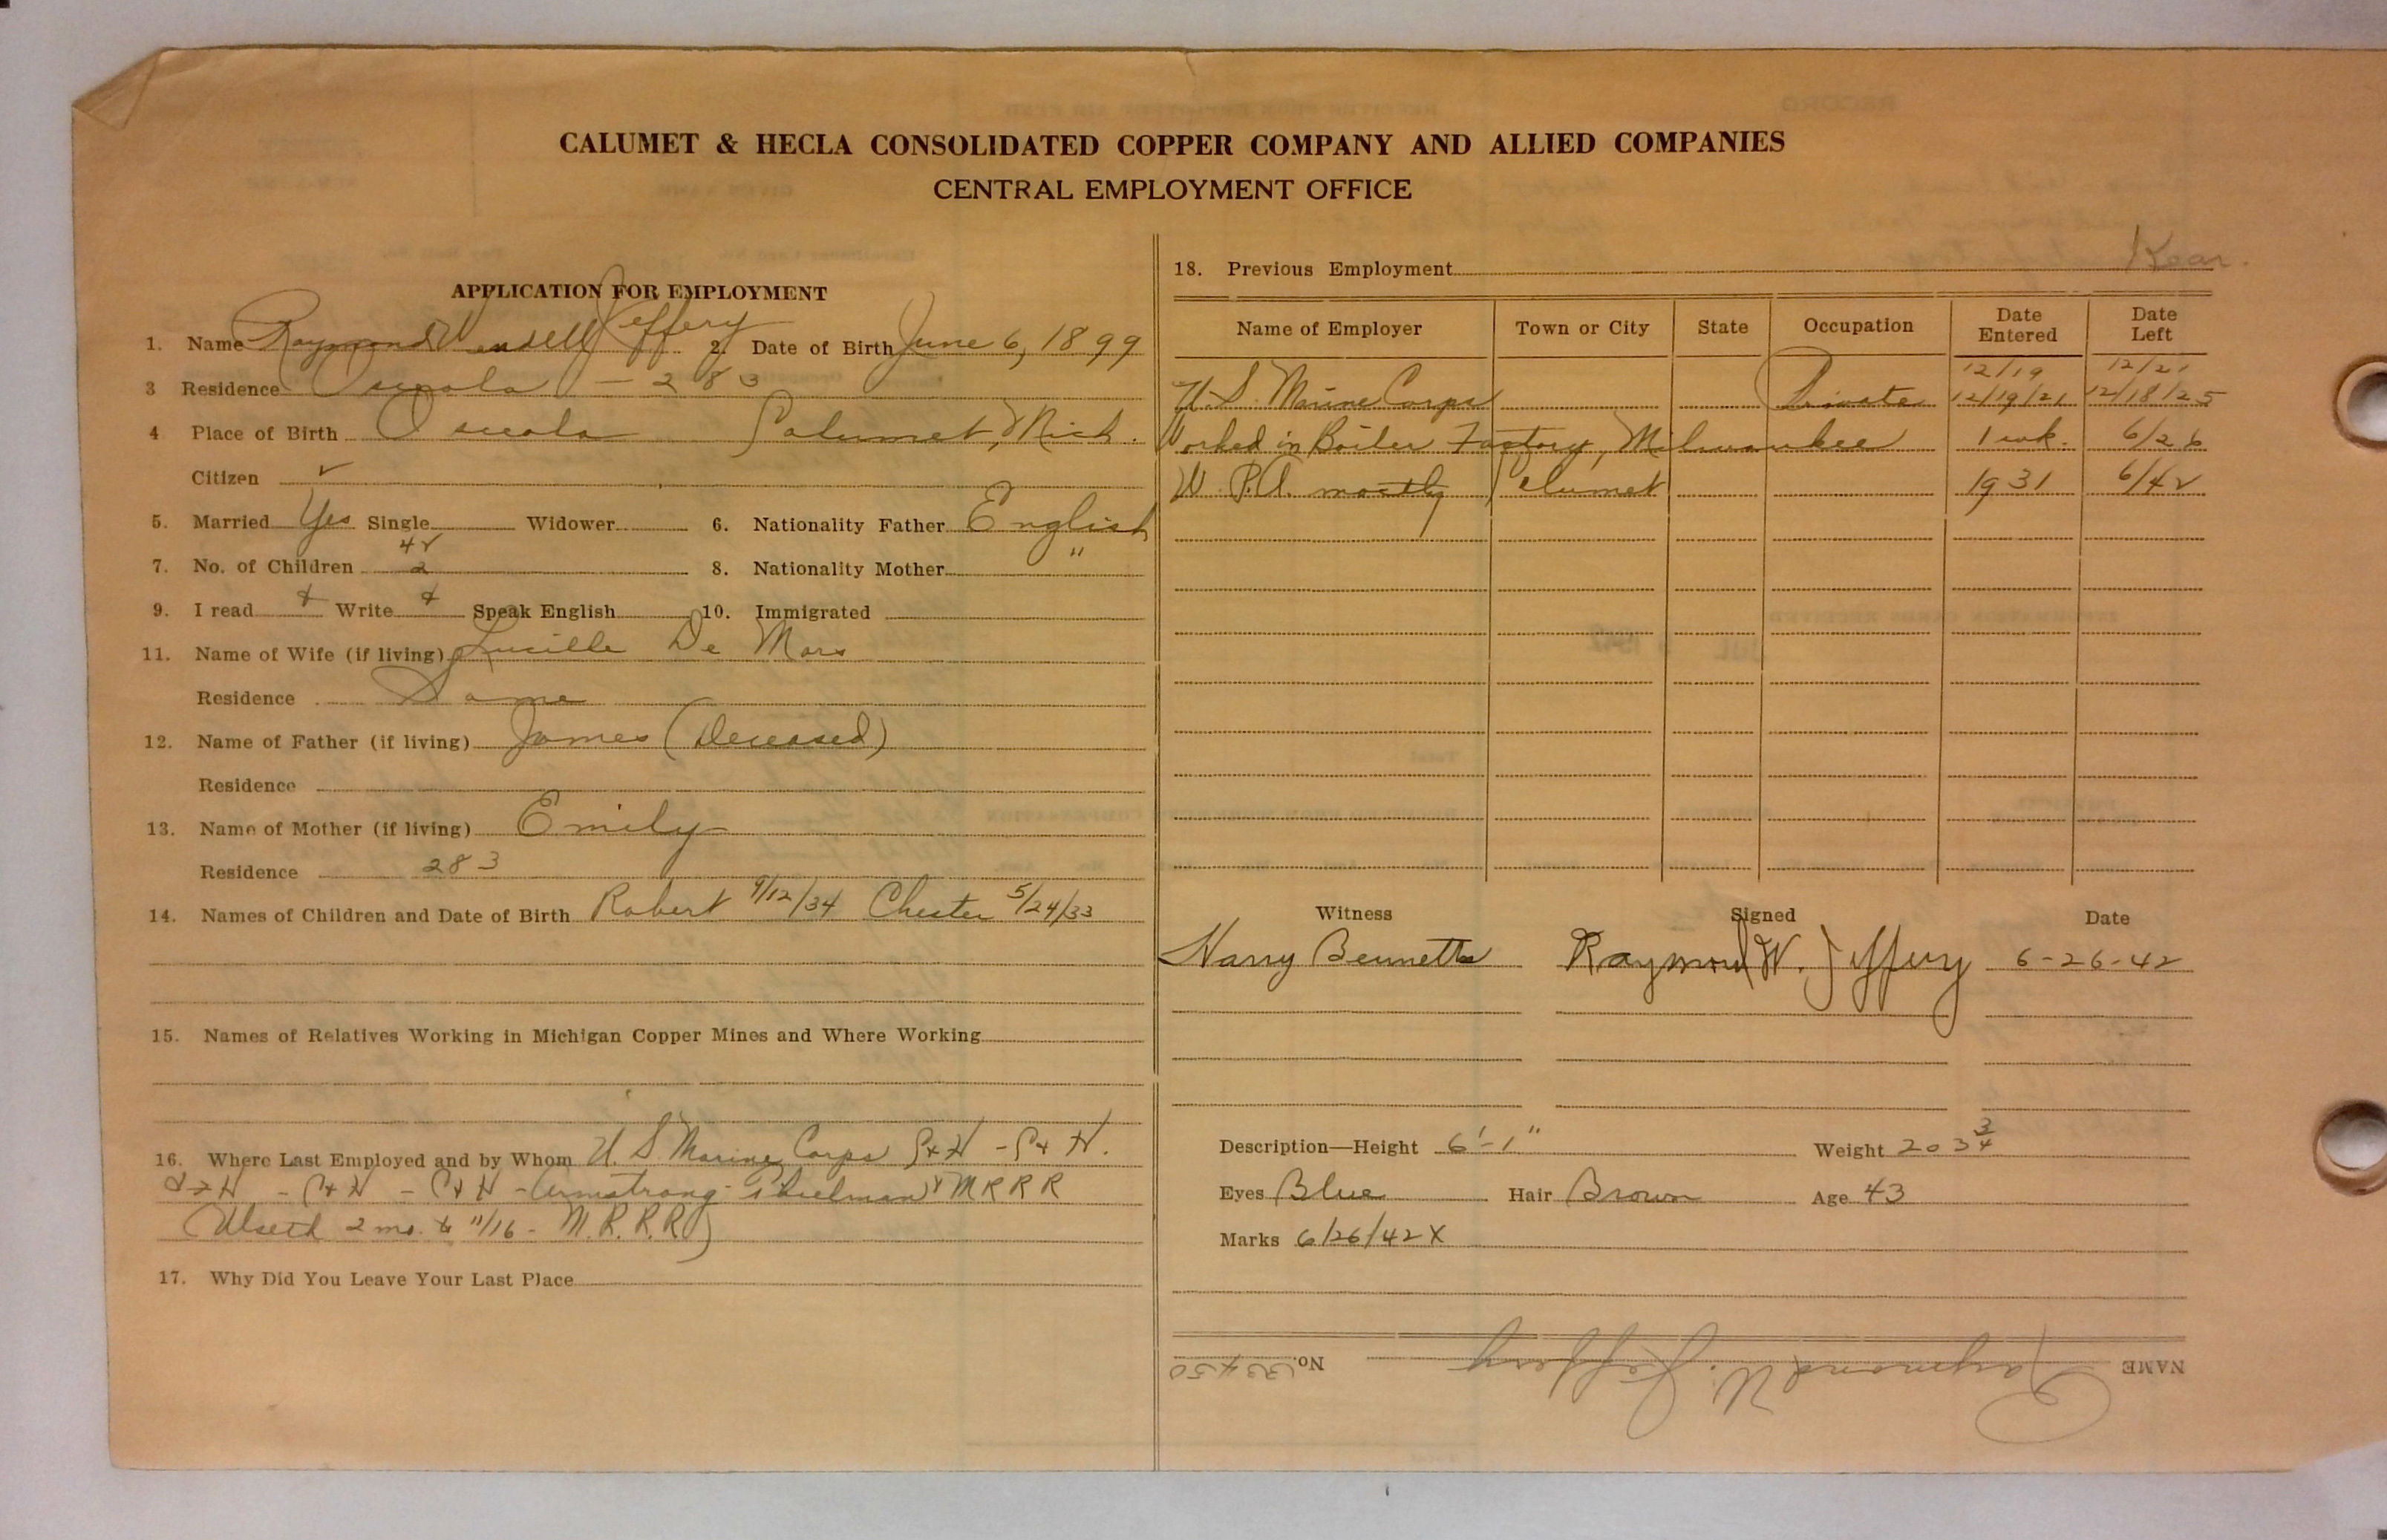 CALUMET & HECLA CONSOLIDATED COPPER COMPANY AND ALLIED COMPANIES
CENTRAL EMPLOYMENT OFFICE
APPLICATION FOR EMPLOYMENT
1. Name Raymond Wendell Jeffery 2. Date of Birth June 6, 1899
3 Residence Osceola - 283
4 Place of Birth Osceola Calumet, Mich.
Citizen ✓
5. Married Yes Single Widower 6. Nationality Father English
4 ✓
7. No. of Children 2 8. Nationality Mother "
9. I read + Write + Speak English 10. Immigrated
11. Name of Wife (if living) Lucille De Mars
Residence Same
12. Name of Father (if living) James (Deceased)
Residence
13. Name of Mother (if living) Emily
Residence 283
14. Names of Children and Date of Birth Robert 9/12/34 Chester 5/24/33
15. Names of Relatives Working in Michigan Copper Mines and Where Working
16. Where Last Employed and by Whom U.S. Marine Corps C+H - C+H.
C+H - C+H - C+H - Armstrong Thielman & M R R R
2 mo. to 11/16 - M.R.R.R)
17. Why Did You Leave Your Last Place
18. Previous Employment Kear.
Name of Employer Town or City State Occupation Date Entered Date Left
12/19 12/21
U.S. Marine Corps Private 12/19/21 12/18/25
Worked in Boiler Factory, Milwaukee 1 wk. 6/26
W.P.A. mostly Calumet 1931 6/42
Witness Signed Date
Harry Bennetts Raymond W. Jeffery 6-26-42
Description—Height 6'-1" Weight 203 3/4
Eyes Blue Hair Brown Age 43
Marks 6/26/42 X
NAME Raymond W. Jeffery No. 33450